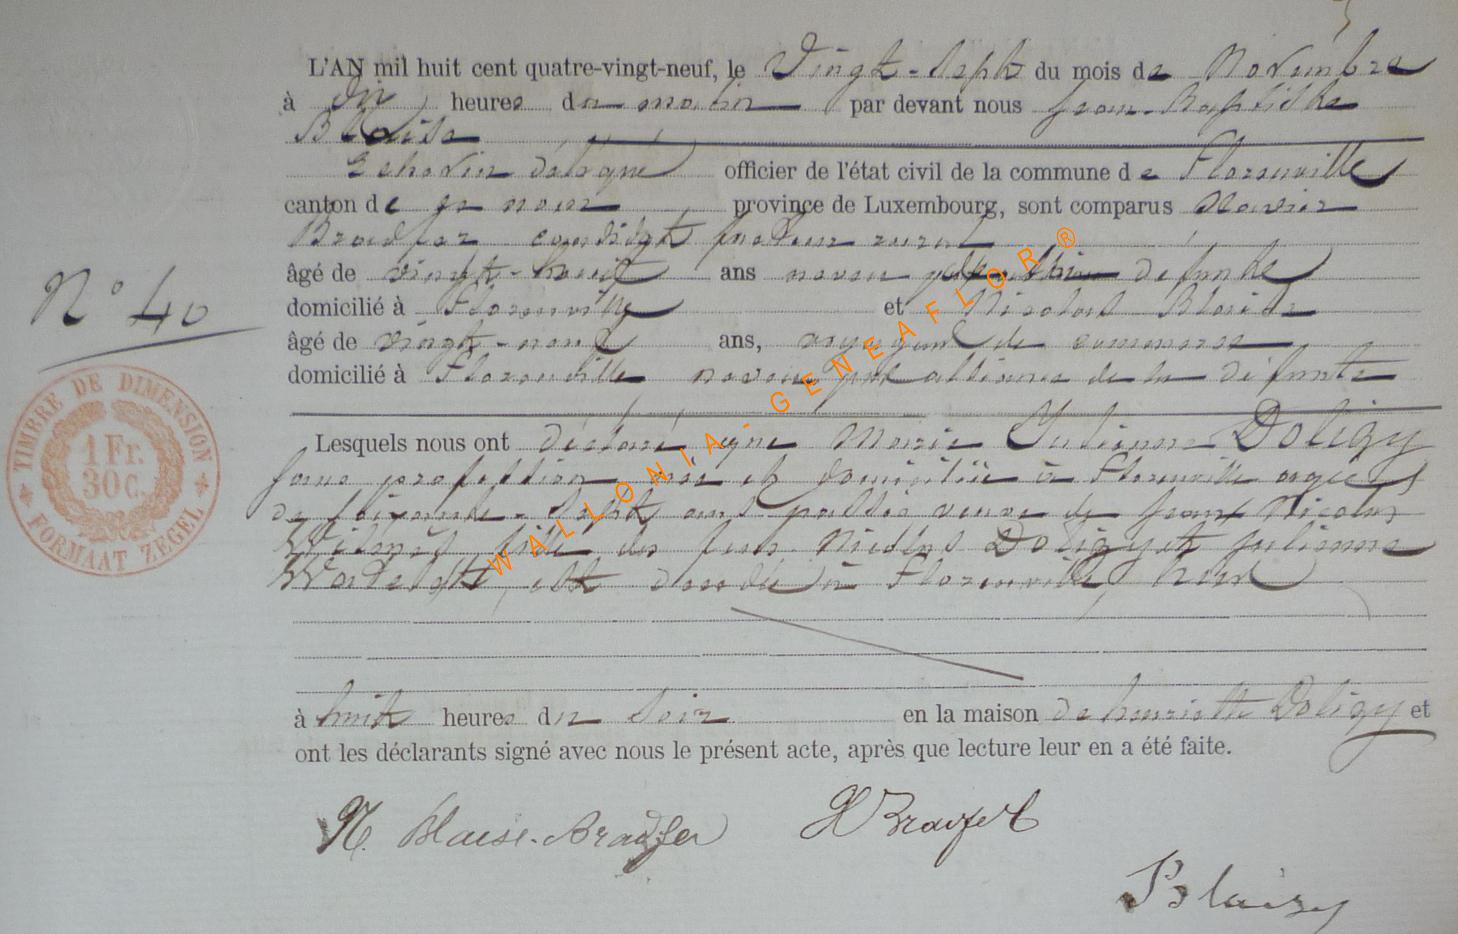 L'AN mil huit cent quatre-vingt-neuf, le Vingt-Sept du mois de Novembre
à dix heures du matin par devant nous Jean-Baptiste
Blaise
Echevin délégué officier de l'état civil de la commune de Florenville
canton de ce nom province de Luxembourg, sont comparus
Bradfer facteur rural
âgé de vingt-huit ans neveu défunte
domicilié à Florenville et Nicolas Blaise
âgé de vingt-neuf ans, voyageur de commerce
domicilié à Florenville neveu par alliance de la défunte
N° 40
TIMBRE DE DIMENSION
1 Fr.
30 C.
FORMAAT ZEGEL
Lesquels nous ont déclaré que Marie Julienne Doligy
sans profession née et domiciliée à Florenville agée
de soixante-sept ans passés veuve de Jean Nicolas
fille des feus Nicolas Doligy et Julienne
est décédée à Florenville hier
à huit heures du soir en la maison de henriette Doligy et
ont les déclarants signé avec nous le présent acte, après que lecture leur en a été faite.
N. Blaise-Bradfer Bradfer
Blaise
WALLONIA-GENEAFLOR ®